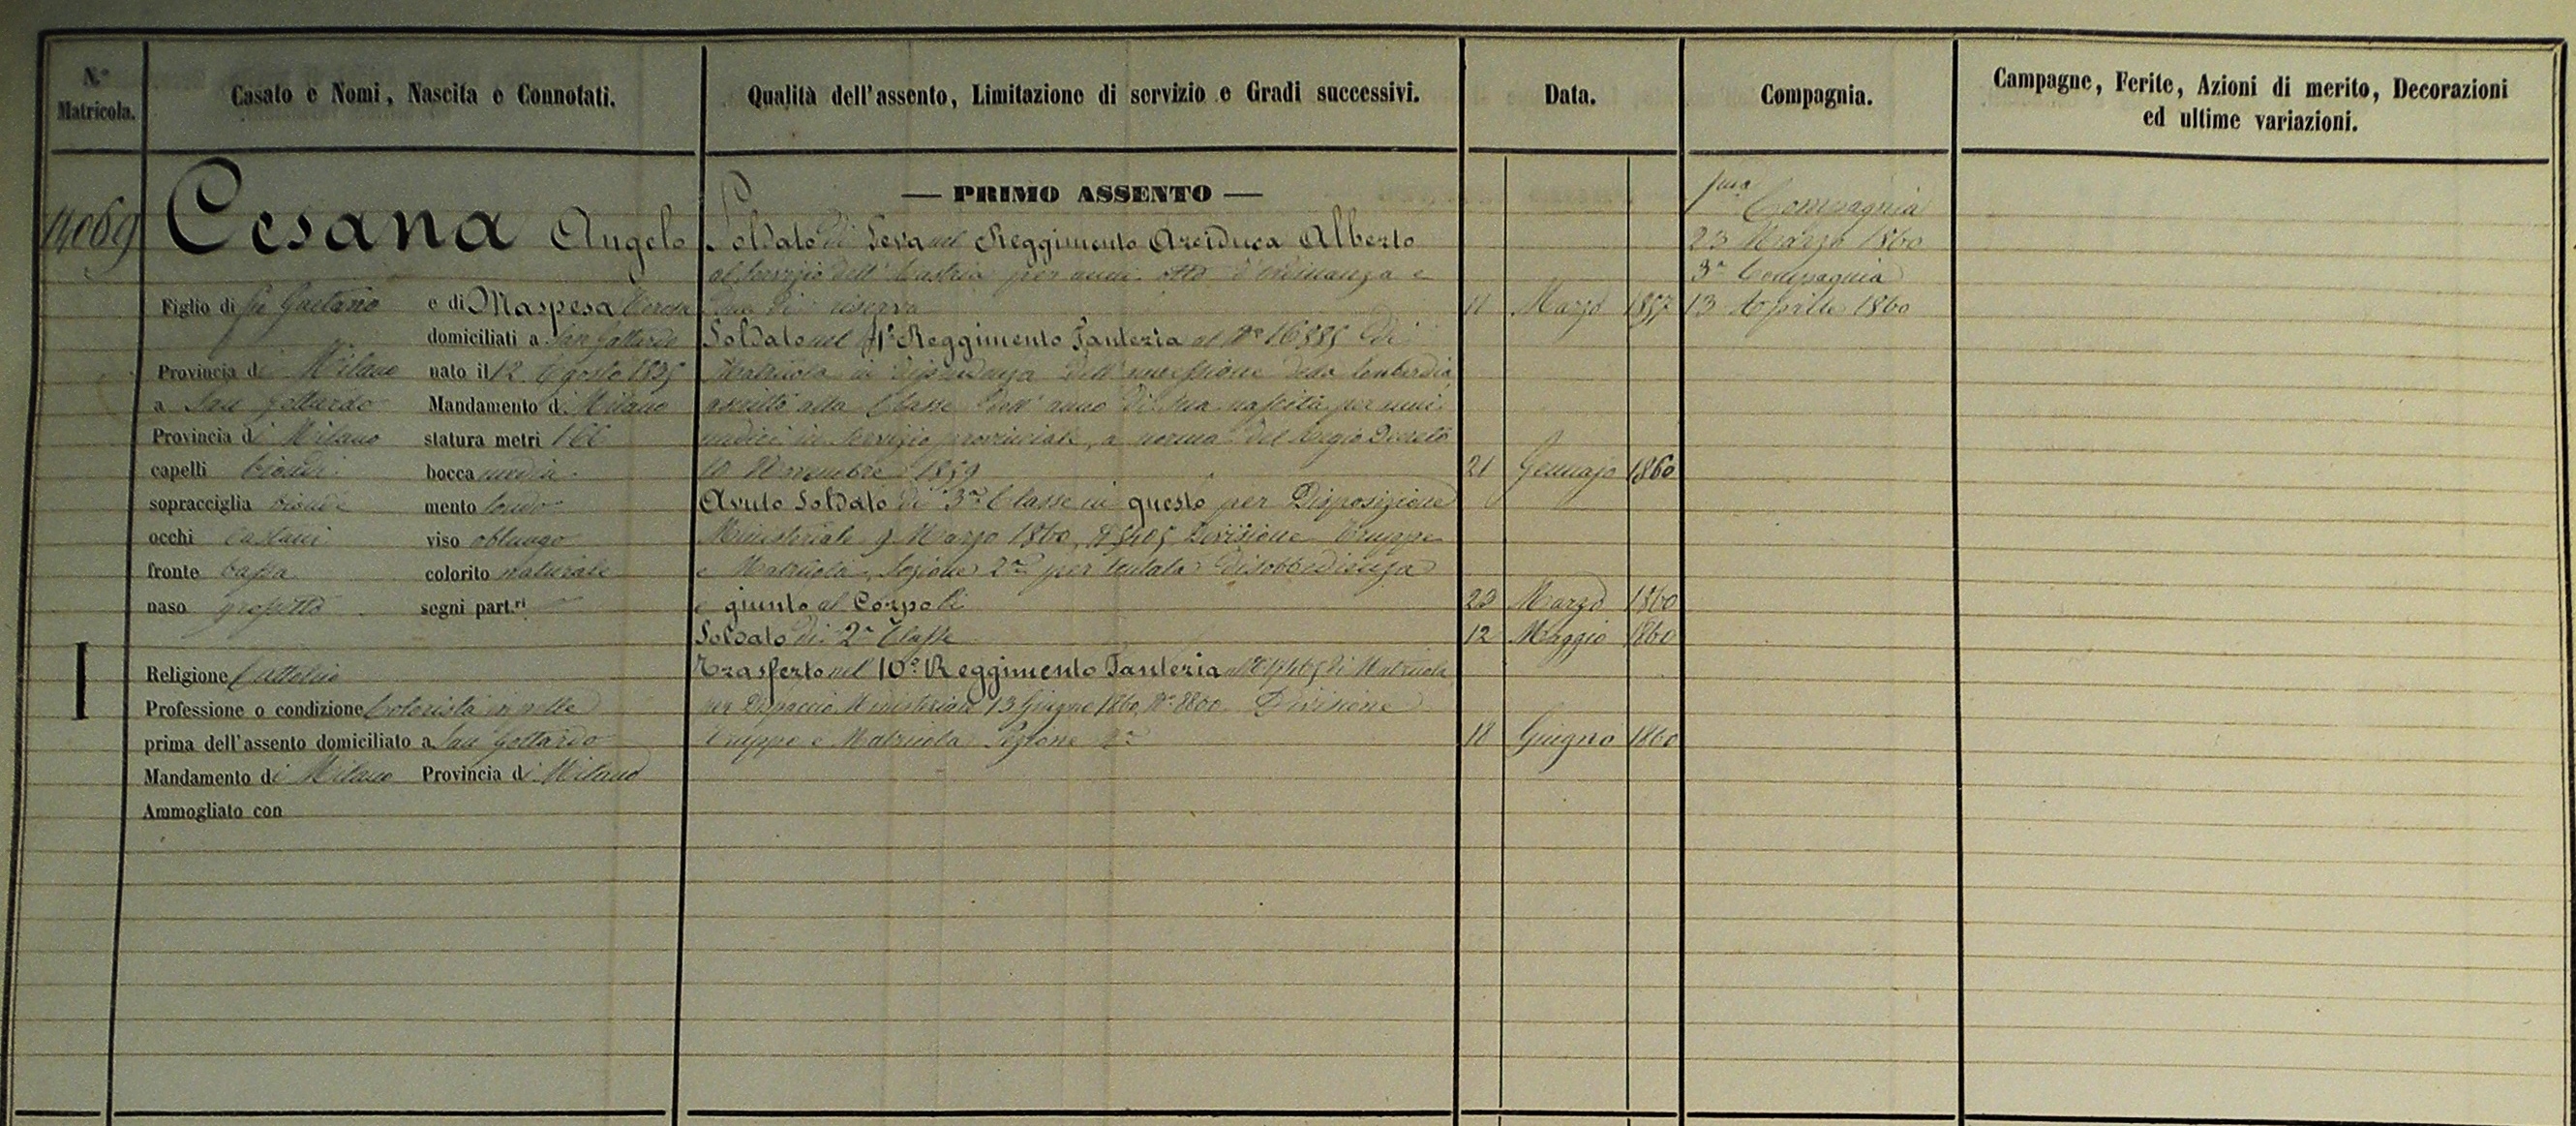 N.º Matricola.
Casato e Nomi, Nascita e Connotati.
Qualità dell'assento, Limitazione di servizio e Gradi successivi.
Data.
Compagnia.
Campagne, Ferite, Azioni di merito, Decorazioni
ed ultime variazioni.
14069
Cesana Angelo
Figlio di fu Gaetano e di Maspesa Teresa
domiciliati a San Gottardo
Provincia di Milano nato il 12 Agosto 1835
a San Gottardo Mandamento di Milano
Provincia di Milano statura metri 1 66
capelli biondi bocca media
sopracciglia bionde mento tondo
occhi castani viso oblungo
fronte bassa colorito naturale
naso grossetto segni part.ri
I
Religione Cattolica
Professione o condizione in pelle
prima dell'assento domiciliato a San Gottardo
Mandamento di Milano Provincia di Milano
Ammogliato con
— PRIMO ASSENTO —
Soldato di Leva nel Reggimento Arciduca Alberto
al servizio dell'Austria per anni otto d'ordinanza e
due di riserva 11 Marzo 1857
Soldato nel 1º Reggimento Fanteria al Nº 16385 di
Matricola in dipendenza dell'annessione della Lombardia
ascritto alla Classe dell'anno di sua nascita per anni
undici in servizio provinciale, a norma del Regio Decreto
10 Novembre 1859 21 Gennajo 1860
Avuto Soldato di 3ª Classe in questo per Disposizione
Ministeriale 9 Marzo 1860, Nº 5405 Divisione Truppe
e Matricola, Sezione 2ª per tentata disobbedienza
e giunto al Corpo li 23 Marzo 1860
Soldato di 2ª Classe 12 Maggio 1860
Trasferto nel 10º Reggimento Fanteria al di Matricola
per Dispaccio Ministeriale 13 Giugno 1860, Nº 8800 Divisione
Truppe e Matricola Sezione 2ª 18 Giugno 1860
1ma Compagnia
23 Marzo 1860
3ª Compagnia
13 Aprile 1860